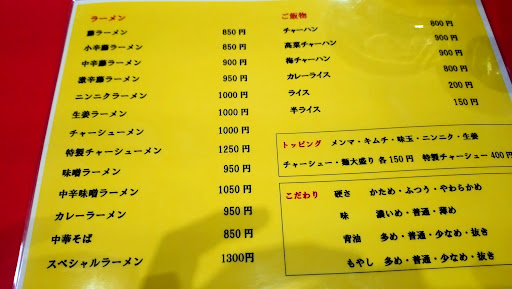 ラーメン
藤ラーメン 850円
小辛藤ラーメン 850円
中辛藤ラーメン 900円
激辛藤ラーメン 950円
ニンニクラーメン 1000円
生姜ラーメン 1000円
チャーシューメン 1000円
特製チャーシューメン 1250円
味噌ラーメン 950円
中辛味噌ラーメン 1050円
カレーラーメン 950円
中華そば 850円
スペシャルラーメン 1300円
ご飯物
チャーハン 800円
高菜チャーハン 900円
梅チャーハン 900円
カレーライス 800円
ライス 200円
半ライス 150円
トッピング メンマ・キムチ・味玉・ニンニク・生姜
チャーシュー・麺大盛り 各150円 特製チャーシュー400円
こだわり 硬さ かため・ふつう・やわらかめ
味 濃いめ・普通・薄め
背油 多め・普通・少なめ・抜き
もやし 多め・普通・少なめ・抜き